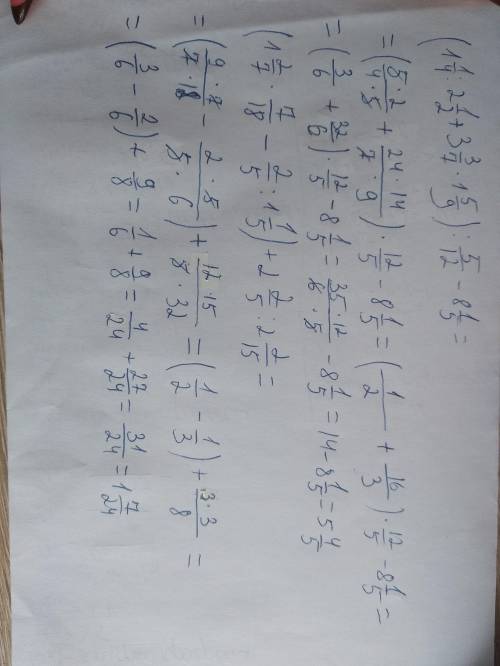 (1 1/4 : 2 1/2 + 3 3/7 · 1 5/9) : 5/12 − 8 1/5 =
= (5·2/4·5 + 24·14/7·9) · 12/5 − 8 1/5 = (1/2 + 16/3) · 12/5 − 8 1/5 =
= (3/6 + 32/6) · 12/5 − 8 1/5 = 35·12/6·5 − 8 1/5 = 14 − 8 1/5 = 5 4/5
(1 2/7 · 7/18 − 2/5 : 1 1/5) + 2 2/5 : 2 2/15 =
= (9·7/7·18 − 2·5/5·6) + 12·15/5·32 = (1/2 − 1/3) + 3·3/8 =
= (3/6 − 2/6) + 9/8 = 1/6 + 9/8 = 4/24 + 27/24 = 31/24 = 1 7/24